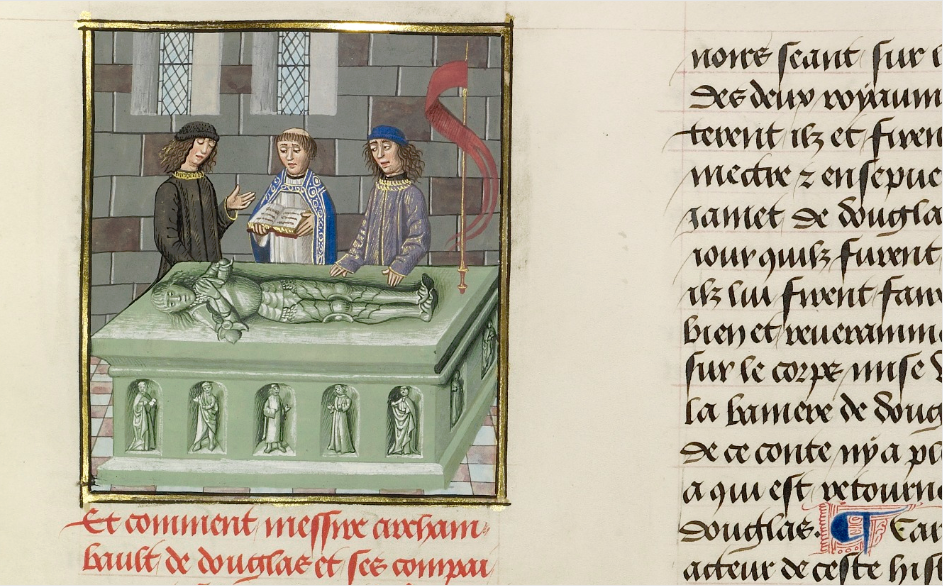 Et comment messire archam-
bault de douglas et ses compai
noire seant sur
des deux royaum
terent ilz et firen
mectre z ensepue
jamet de dougla
jour quilz furent
ilz lui firent fair
bien et reueramme
sur le corps mise
la baniere de doug
de ce conte ny a pl
a qui est retourn
douglas. Car
acteur de ceste his